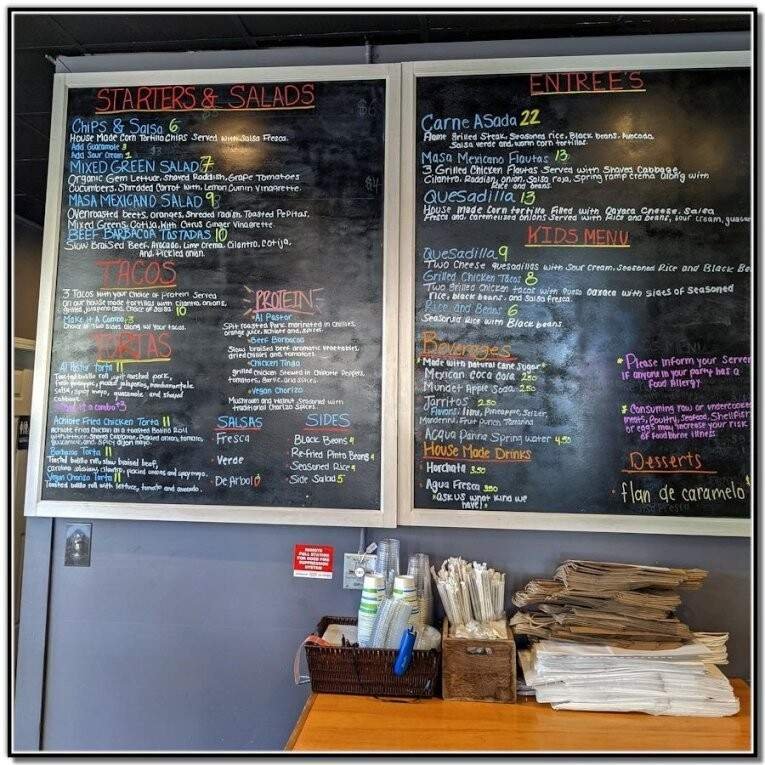 STARTERS & SALADS
CHIPS & SALSA 6
House Made Corn Tortilla Chips Served with Salsa Fresca.
Add Guacamole 3
Add Sour Cream 1
MIXED GREEN SALAD 7
Organic Gem Lettuce, Shaved Raddish, Grape Tomatoes
Cucumbers, Shredded Carrot with Lemon Cumin Vinagrette.
MASA MEXICANO SALAD 9
Oven roasted beets, oranges, Shreded radish, Toasted Pepitas,
Mixed Greens, Cotija, With Citrus Ginger Vinaigrette.
BEEF BARBACOA TOSTADAS 10
Slow Braised Beef, Avocado, Lime Crema, Cilantro, Cotija,
And Pickled onion.
TACOS
3 Tacos with your choice of Protein Served
on our house made tortillas with cilantro, onions,
grilled jalapeno, and, Choice of Salsa. 10
Make it A Combo +3
Choice of Two sides along w/ your tacos.
TORTAS
Al Pastor Torta 11
Toasted bolillo roll
guacamole, and
cabbage.
Make it a combo +3
Achiote Fried Chicken Torta 11
Achiote Fried Chicken in a Toasted Bolillo Roll
with lettuce, Shaved Cabbage, Pickled onion, tomato,
guacamole, and spicy dijon mayo.
Barbacoa Torta 11
Toasted bolillo roll, slow braised beef,
cabbage, cilantro, pickled onions and spicy mayo.
Vegan Chorizo Torta 11
Toasted bolillo roll with lettuce, tomato and avocado.
PROTEIN
Al Pastor
Spit roasted Pork marinated in Chilies,
orange juice, Achiote and, Spices.
Beef Barbacoa
Slow braised beef, aromatic vegetables,
dried chilies and tomatoes.
Chicken Tinga
grilled Chicken Stewed in Chipotle Peppers,
tomatoes, garlic, and spices.
Vegan Chorizo
Mushroom and Walnut, Seasoned with
traditional Chorizo Spices.
SALSAS
Fresca
Verde
De Arbol
SIDES
Black Beans 4
Re-Fried Pinto Beans 4
Seasoned Rice 4
Side Salad 5
ENTREE'S
Carne Asada 22
Flame Grilled Steak, Seasoned rice, Black beans, Avocado,
Salsa verde and warm corn tortillas.
Masa Mexicano Flautas 13
3 Grilled Chicken Flautas Served with Shaved Cabbage
Cilantro, Raddish, onion, Salsa roja, Spring ramp crema along with
Rice and beans.
QueSadilla 13
House Made Corn tortilla Filled with Oaxaca Cheese, Salsa
Fresca and, Caramelized onions Served with Rice and beans, sour cream,
KIDS MENU
QueSadilla 9
Two Cheese quesadillas with Sour cream, Seasoned Rice and Black
Grilled Chicken Tacos 8
Two Grilled chicken tacos with Queso Oaxaca with sides of Seasoned
rice, black beans, and Salsa fresca.
Rice and Beans 6
Seasoned Rice with Black beans.
Beverages
*Made with Natural Cane Sugar*
Mexican Coca Cola 2.50
Mundet Apple Soda 2.50
Jarritos 2.50
Flavors: Lime, Pineapple, Seltzer,
Mandarin, Fruit Punch, Tamarind
Acqua Panna Spring Water 4.50
HOUSE MADE DRINKS
Horchata 3.50
Agua Fresca 3.50
*ask us what kind we
have! *
*Please inform your Server
if anyone in your party has a
Food Allergy
*Consuming raw or undercooked
meats, Poultry, Seafood, Shellfish
or eggs may increase your risk
of food borne illness
Desserts
flan de caramelo
REMOTE
PULL STATION
FOR HOOD FIRE
SUPPRESSION
SYSTEM